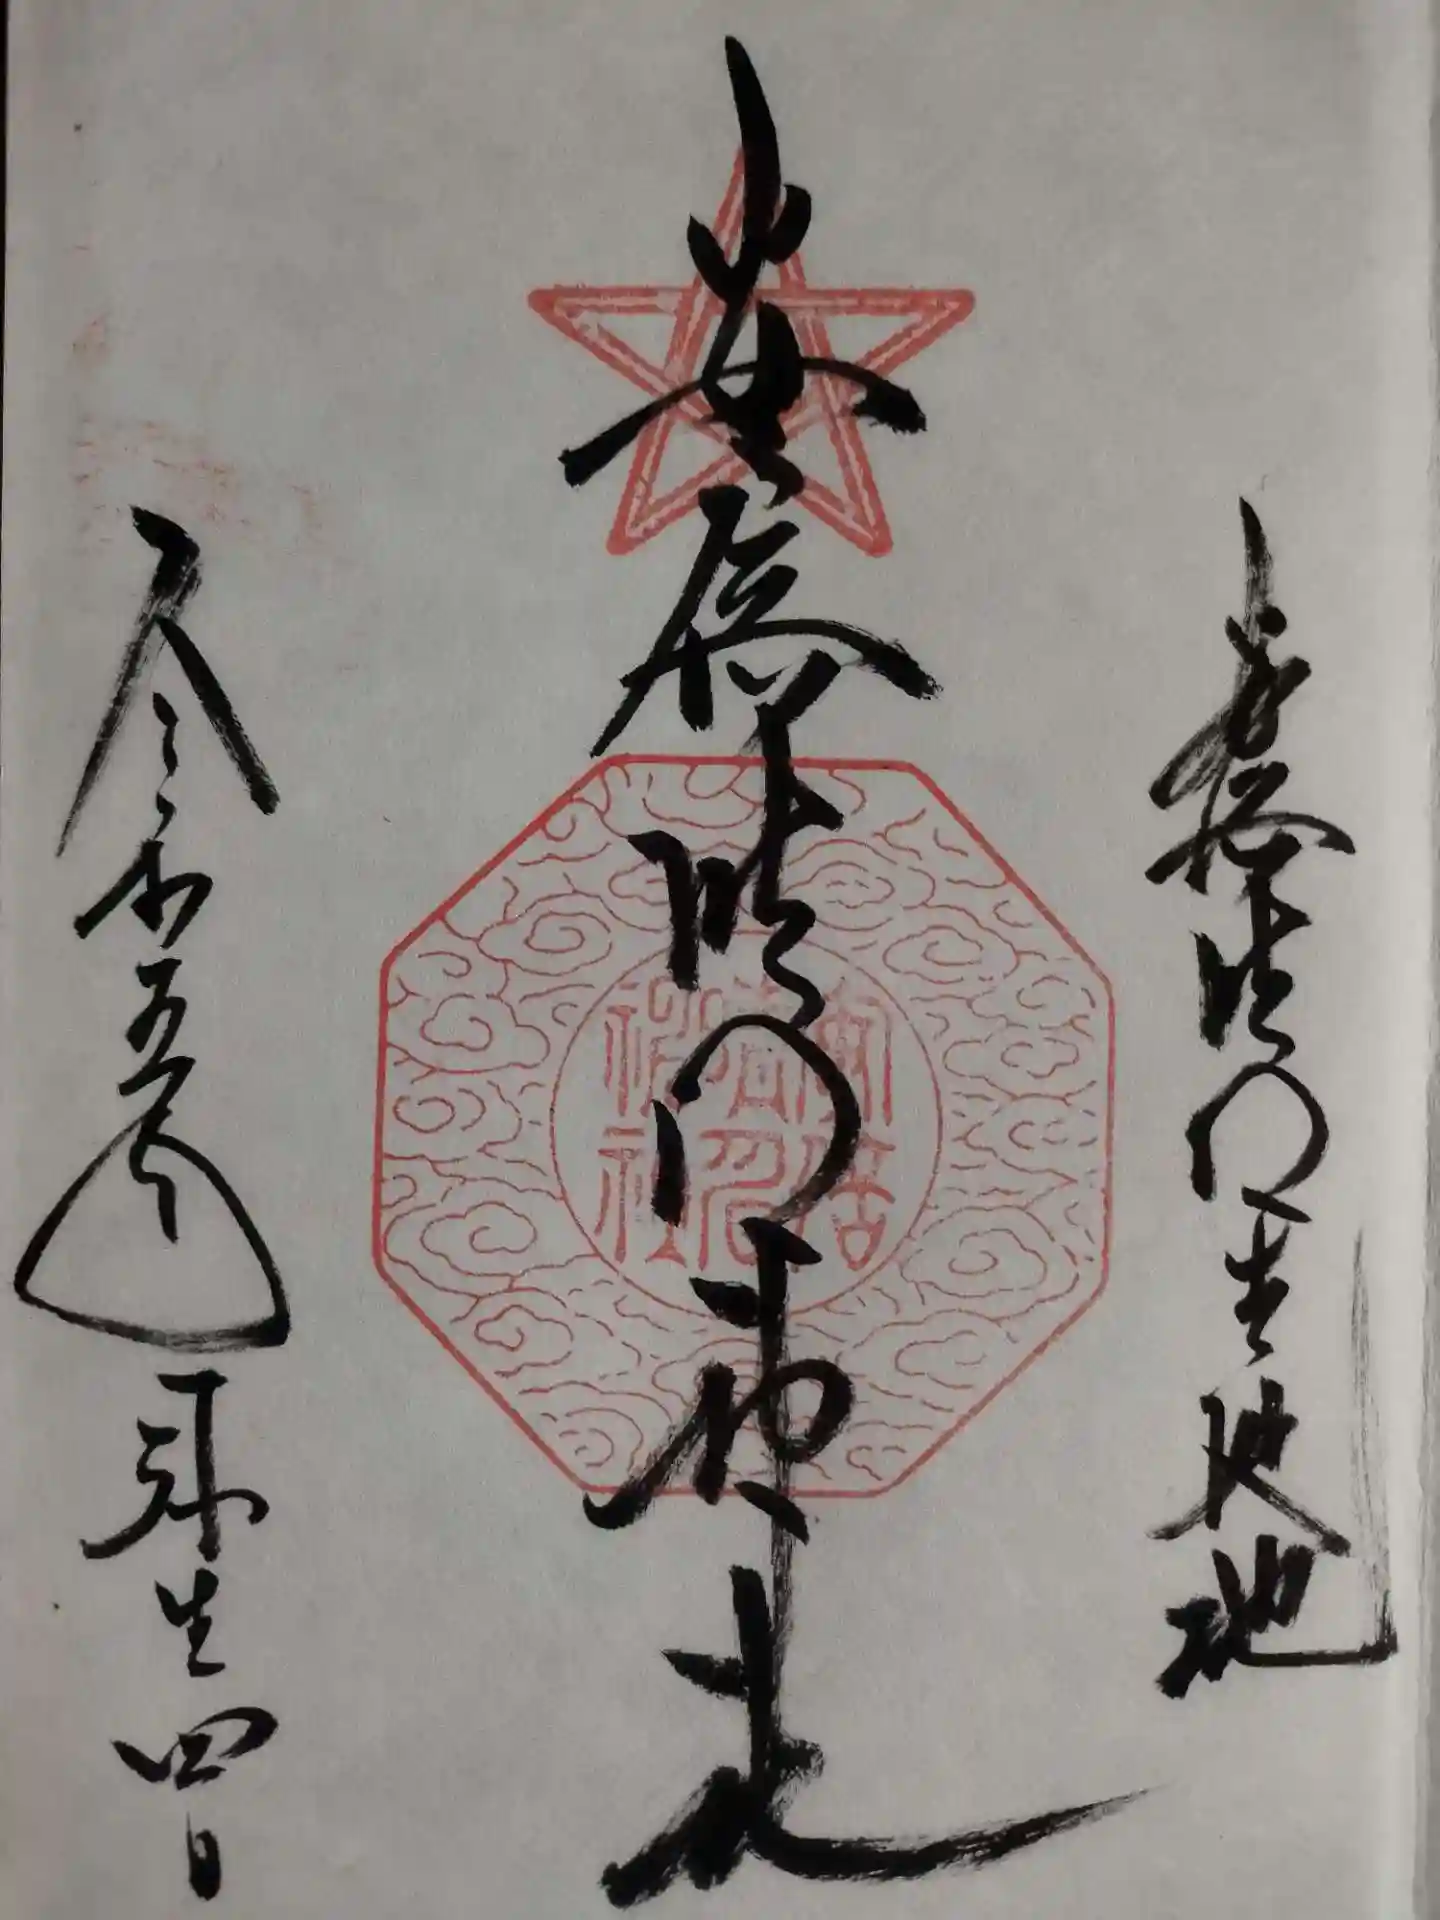 安倍晴明生誕地
安倍晴明神社
令和五年弥生四日
安倍晴明神社